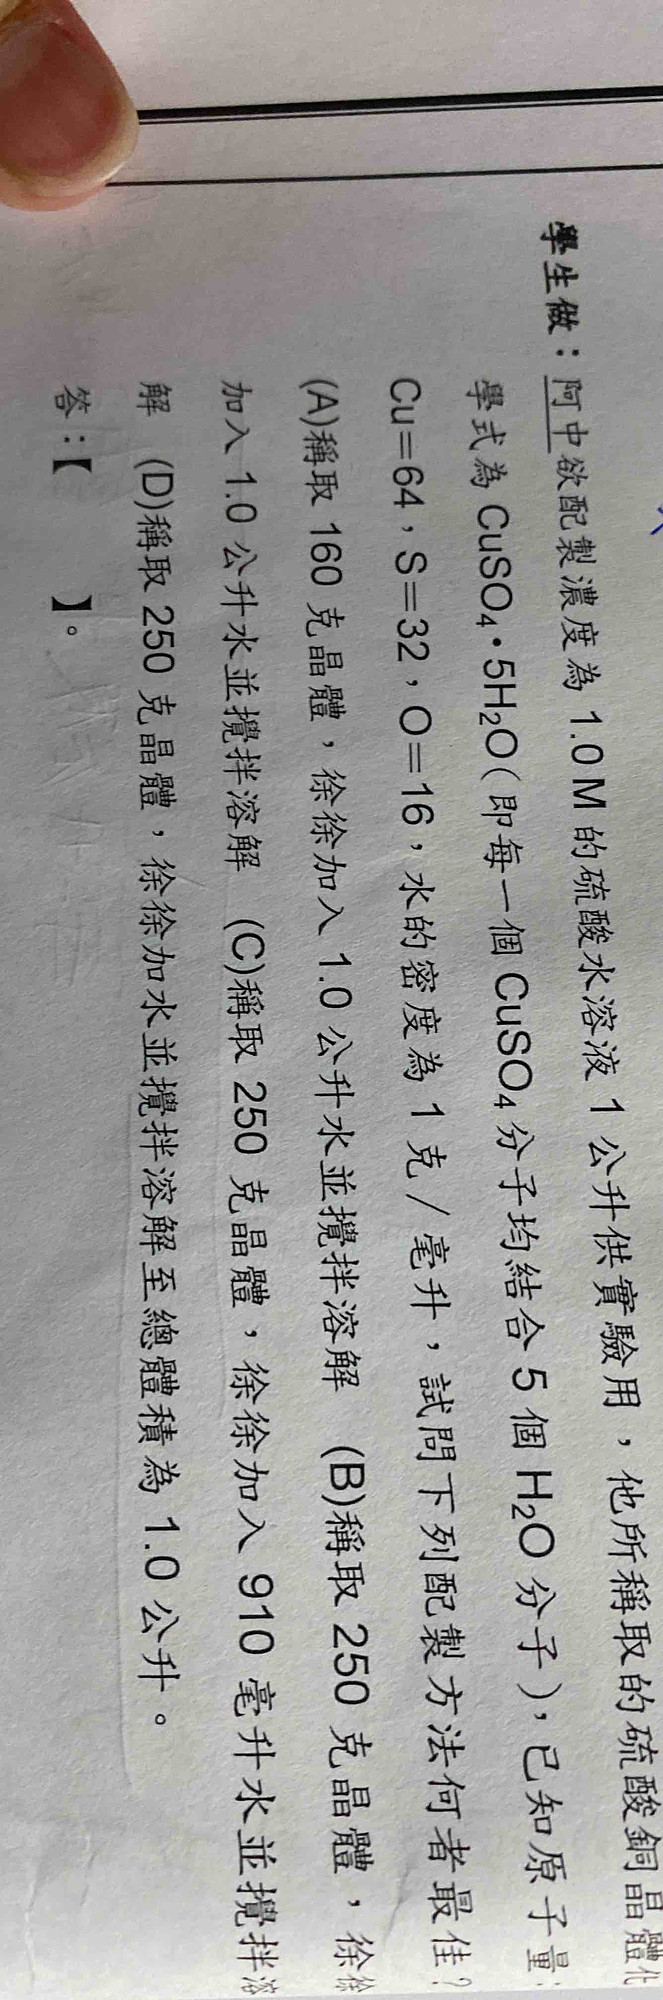 學生做：阿中欲配製濃度為 1.0 M 的硫酸水溶液 1 公升供實驗用，他所稱取的硫酸銅晶體化
學式為 CuSO₄•5H₂O（即每一個 CuSO₄ 分子均結合 5 個 H₂O 分子），已知原子量：
Cu＝64，S＝32，O＝16，水的密度為 1 克／毫升，試問下列配製方法何者最佳？
(A)稱取 160 克晶體，徐徐加入 1.0 公升水並攪拌溶解　(B)稱取 250 克晶體，徐徐
加入 1.0 公升水並攪拌溶解　(C)稱取 250 克晶體，徐徐加入 910 毫升水並攪拌溶
解　(D)稱取 250 克晶體，徐徐加水並攪拌溶解至總體積為 1.0 公升。
答：【　　】。